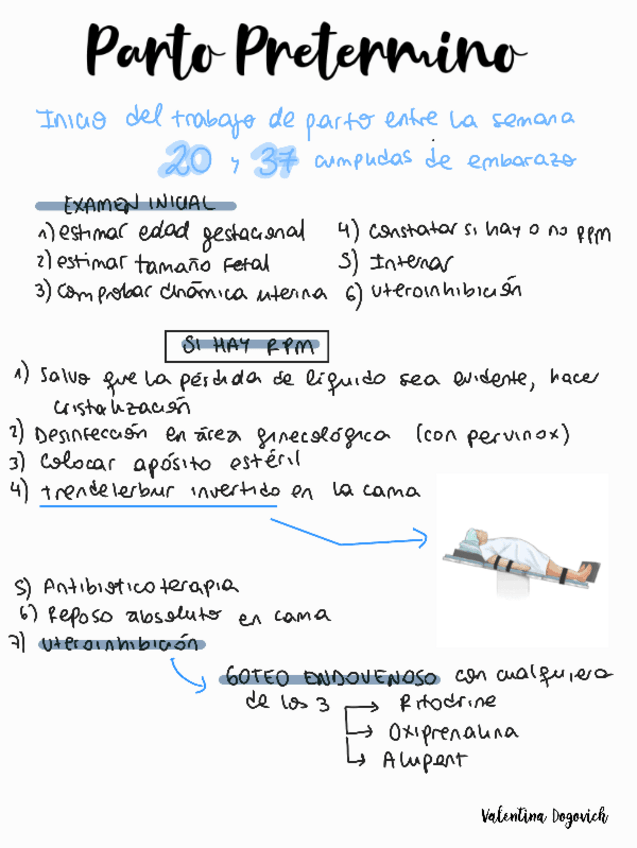 Parto Pretermino
Inicio del trabajo de parto entre la semana
20 y 37 cumplidas de embarazo
EXAMEN INICIAL
1) estimar edad gestacional
2) estimar tamaño fetal
3) comprobar dinámica uterina
4) constatar si hay o no RPM
5) Internar
6) uteroinhibición
SI HAY RPM
1) Salvo que la pérdida de líquido sea evidente, hacer
cristalización
2) Desinfección en área ginecológica (con pervinox)
3) colocar apósito estéril
4) trendelerbur invertido en la cama
5) Antibioticoterapia
6) Reposo absoluto en cama
7) uteroinhibición
GOTEO ENDOVENOSO con cualquiera
de los 3
Ritodrine
Oxiprenalina
Alupent
Valentina Dogovich